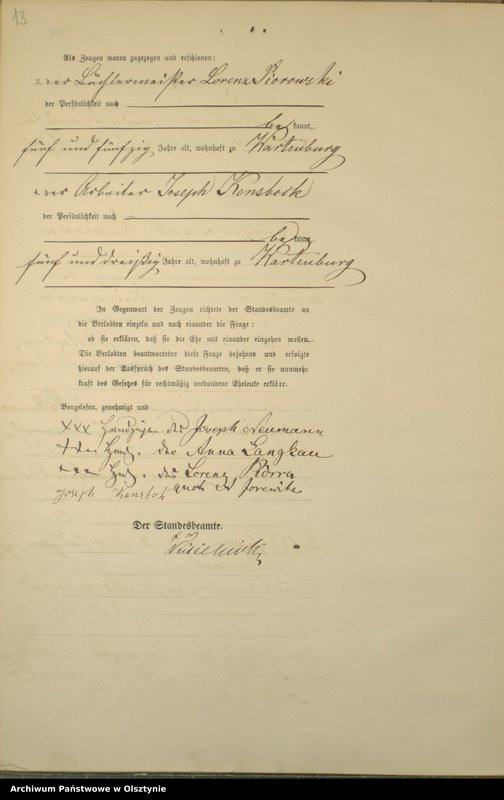 13
Als Zeugen waren zugezogen und erschienen:
3. der Lorenz Piorowski
der Persönlichkeit nach
be kannt,
fünf und fünfzig Jahre alt, wohnhaft zu Wartenburg
4. der Arbeiter Joseph Kensbock
der Persönlichkeit nach
be kannt,
fünf und dreißig Jahre alt, wohnhaft zu Wartenburg
In Gegenwart der Zeugen richtete der Standesbeamte an
die Verlobten einzeln und nach einander die Frage:
ob sie erklären, daß sie die Ehe mit einander eingehen wollen.
Die Verlobten beantworteten diese Frage bejahend und erfolgte
hierauf der Ausspruch des Standesbeamten, daß er sie nunmehr
kraft des Gesetzes für rechtmäßig verbundene Eheleute erkläre.
Vorgelesen, genehmigt und
XXX Handzeichen des Joseph Neumann
+++ Hndz. der Anna Langkau
+++ Hndz. des Lorenz
Joseph Kensbok
Der Standesbeamte.
Archiwum Państwowe w Olsztynie